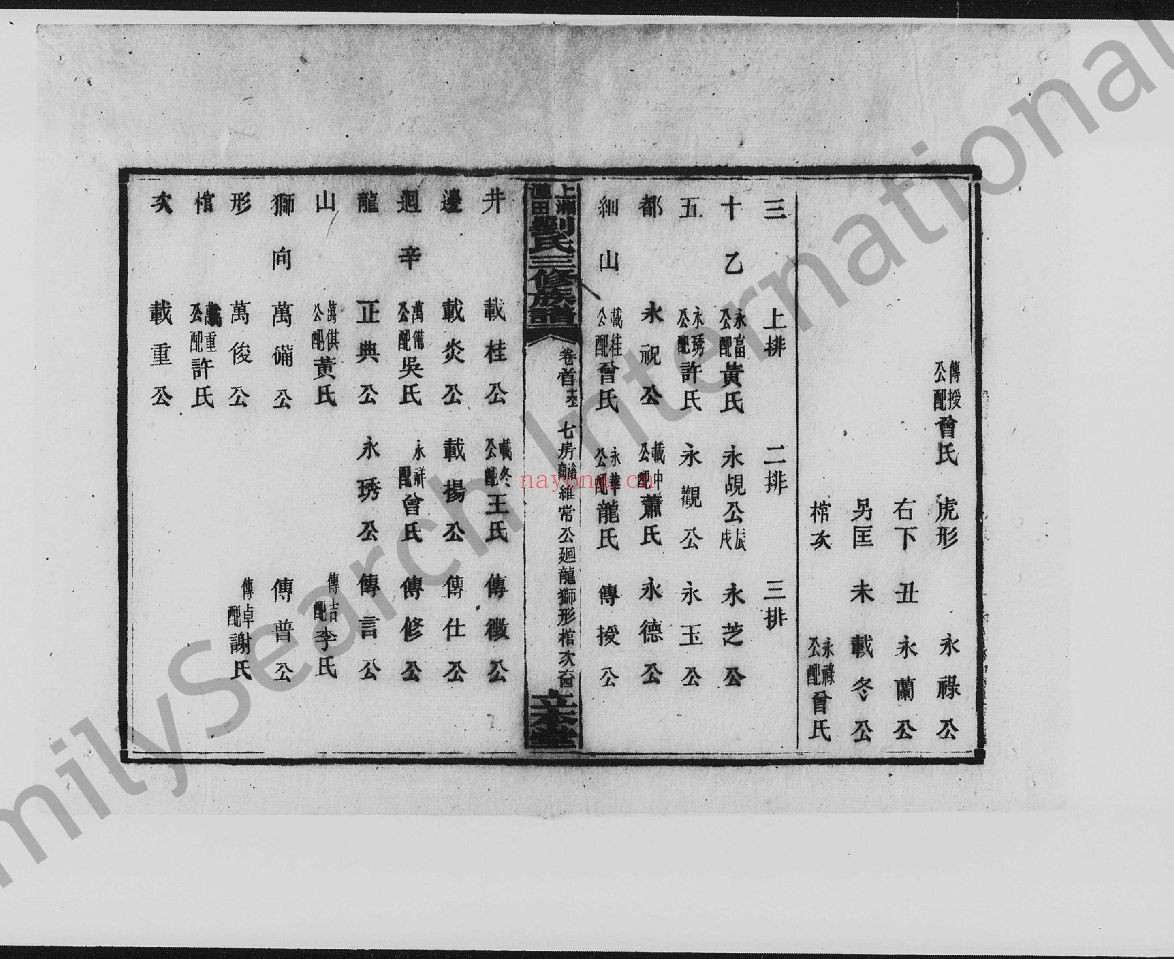 傳授公配曾氏 虎形 永祿公
右下 丑 永蘭公
另匡 未 載冬公
棺次 永祿公配曾氏
三 上排 二排 三排
十乙 永富公配黃氏 永覘公 辰戌 永芝公
五 永琇公配許氏 永觀公 永玉公
都 永祝公 載中公配蕭氏 永德公
細山 載桂公配曾氏 永華公配龍氏 傳授公
上湘 田劉氏三修族譜 卷首 七房 維常公廻龍獅形棺次 立本堂
井 載桂公 載冬公配王氏 傳徽公
邊 載炎公 載揚公 傳仕公
廻辛 萬備公配吳氏 永祥配曾氏 傳修公
龍 正典公 永琇公 傳言公
山 萬供公配黃氏 傳吉配李氏
獅向 萬備公 傳普公
形 萬俊公 傳卓配謝氏
棺 載重公配許氏
次 載重公
FamilySearch International
nayona.cn